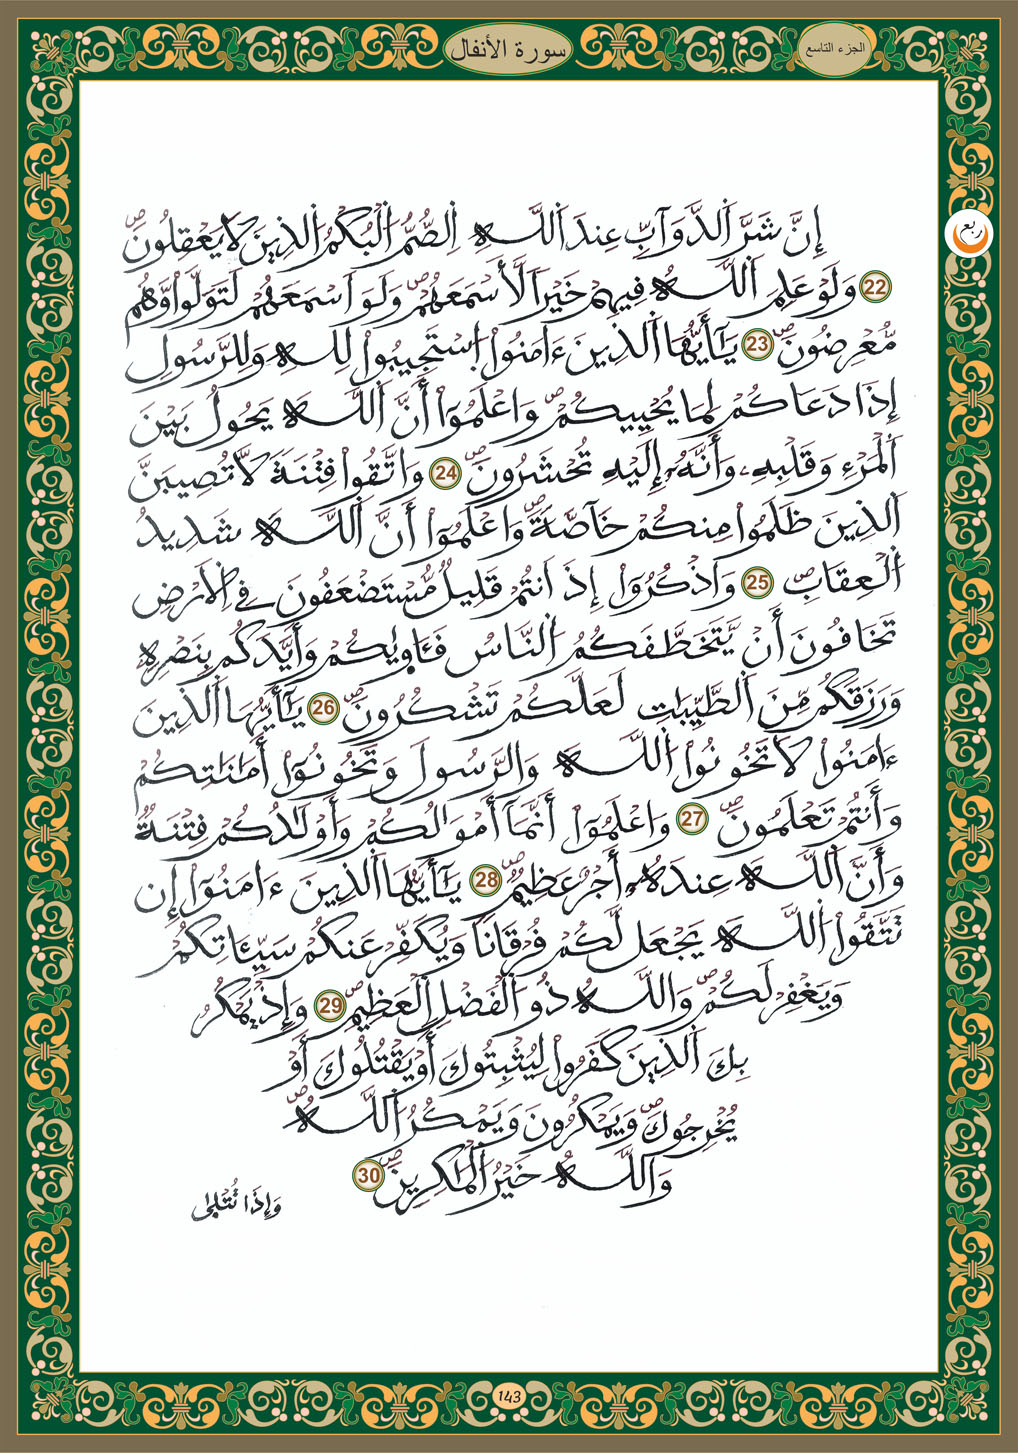 الجزء التاسع
سورة الأنفال
ربع
إِنَّ شَرَّ اَ۬لدَّوَآبِّ عِندَ اَ۬للَّهِ اِ۬لصُّمُّ اُ۬لْبُكْمُ اُ۬لذِينَ لَا يَعْقِلُونَۖ
22 وَلَوْ عَلِمَ اَ۬للَّهُ فِيهِمْ خَيْراٗ لَّأَسْمَعَهُمْۖ وَلَوَ اَسْمَعَهُمْ لَتَوَلَّواْ وَّهُم
مُّعْرِضُونَۖ 23 يَٰٓأَيُّهَا اَ۬لذِينَ ءَامَنُواْ اُ۪سْتَجِيبُواْ لِلهِ وَلِلرَّسُولِ
إِذَا دَعَاكُمْ لِمَا يُحْيِيكُمْۖ وَاعْلَمُوٓاْ أَنَّ اَ۬للَّهَ يَحُولُ بَيْنَ
اَ۬لْمَرْءِ وَقَلْبِهِۦ وَأَنَّهُۥٓ إِلَيْهِ تُحْشَرُونَۖ 24 وَاتَّقُواْ فِتْنَةٗ لَّا تُصِيبَنَّ
اَ۬لذِينَ ظَلَمُواْ مِنكُمْ خَآصَّةٗۖ وَاعْلَمُوٓاْ أَنَّ اَ۬للَّهَ شَدِيدُ
اُ۬لْعِقَابِۖ 25 وَاذْكُرُوٓاْ إِذَ اَنتُمْ قَلِيلٞ مُّسْتَضْعَفُونَ فِے اِ۬لَارْضِ
تَخَافُونَ أَنْ يَّتَخَطَّفَكُمُ اُ۬لنَّاسُ فَـَٔاو۪يٰكُمْ وَأَيَّدَكُم بِنَصْرِهِۦ
وَرَزَقَكُم مِّنَ اَ۬لطَّيِّبَٰتِ لَعَلَّكُمْ تَشْكُرُونَۖ 26 يَٰٓأَيُّهَا اَ۬لذِينَ
ءَامَنُواْ لَا تَخُونُواْ اُ۬للَّهَ وَالرَّسُولَ وَتَخُونُوٓاْ أَمَٰنَٰتِكُمْ
وَأَنتُمْ تَعْلَمُونَۖ 27 وَاعْلَمُوٓاْ أَنَّمَآ أَمْوَٰلُكُمْ وَأَوْلَٰدُكُمْ فِتْنَةٞ
وَأَنَّ اَ۬للَّهَ عِندَهُۥٓ أَجْرٌ عَظِيمٞۖ 28 يَٰٓأَيُّهَا اَ۬لذِينَ ءَامَنُوٓاْ إِن
تَتَّقُواْ اُ۬للَّهَ يَجْعَل لَّكُمْ فُرْقَاناٗ وَيُكَفِّرْ عَنكُمْ سَيِّـَٔاتِكُمْ
وَيَغْفِرْ لَكُمْۖ وَاللَّهُ ذُو اُ۬لْفَضْلِ اِ۬لْعَظِيمِۖ 29 وَإِذْ يَمْكُرُ
بِكَ اَ۬لذِينَ كَفَرُواْ لِيُثْبِتُوكَ أَوْ يَقْتُلُوكَ أَوْ
يُخْرِجُوكَۖ وَيَمْكُرُونَ وَيَمْكُرُ اُ۬للَّهُۖ
وَاللَّهُ خَيْرُ اُ۬لْمَٰكِرِينَۖ 30
وَإِذَا تُتْل۪يٰ
143